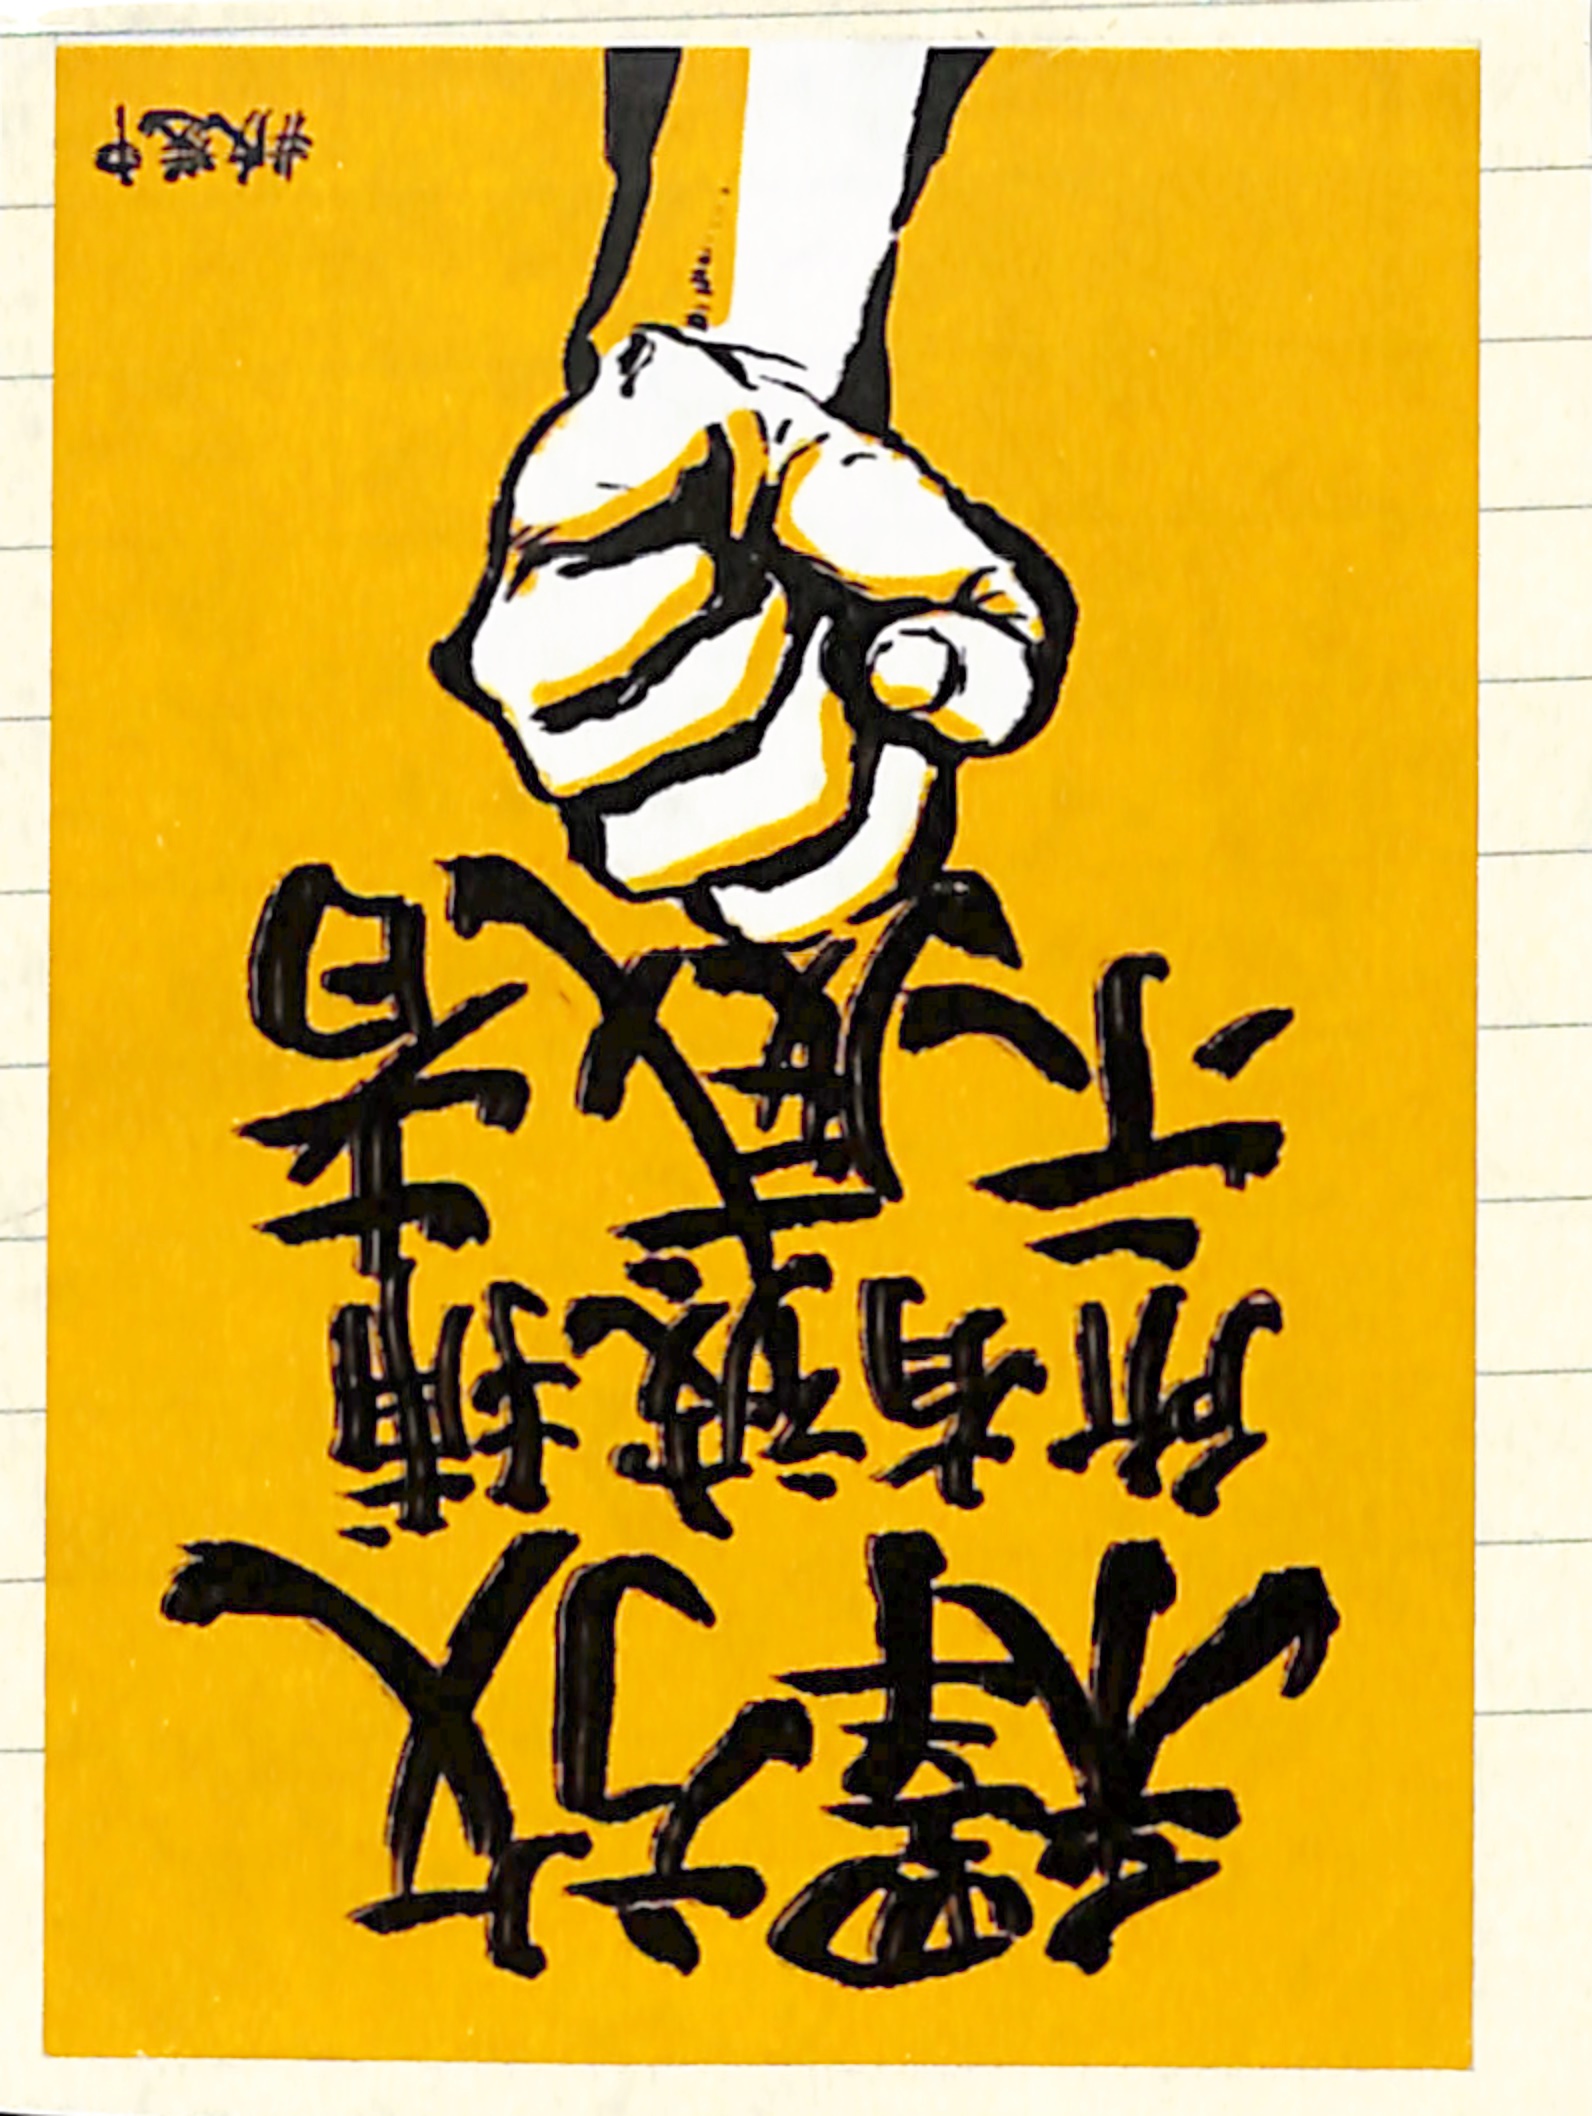 釋放
所有被捕
示威者
#反送中